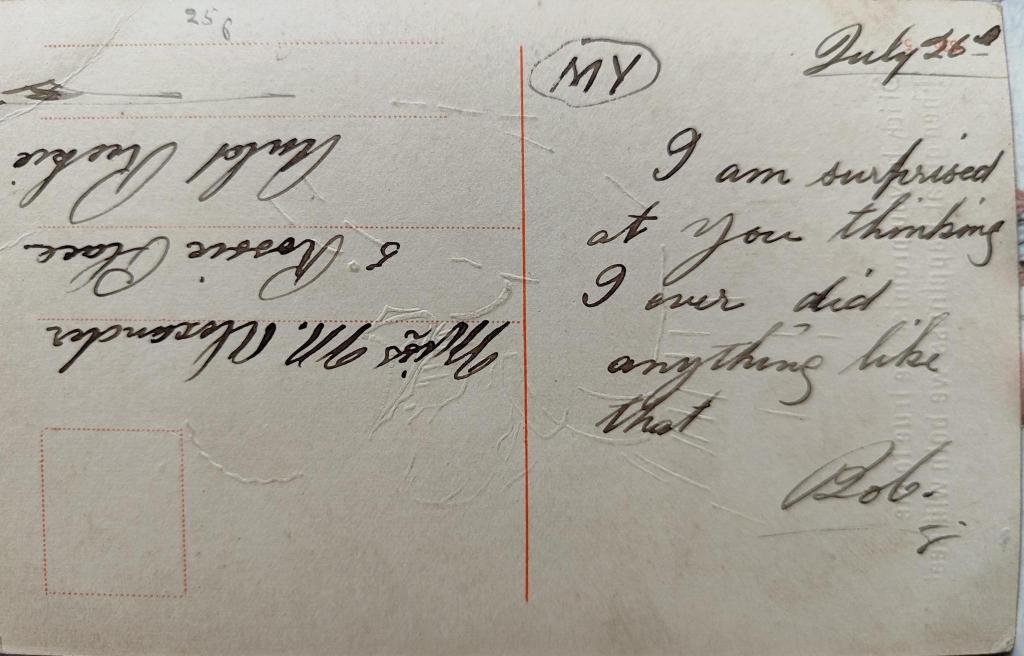 25p
MY
July 26th
I am surprised
at you thinking
I ever did
anything like
that
Bob.
Miss M. Alexander
5 Rossie Place
Auld Reekie